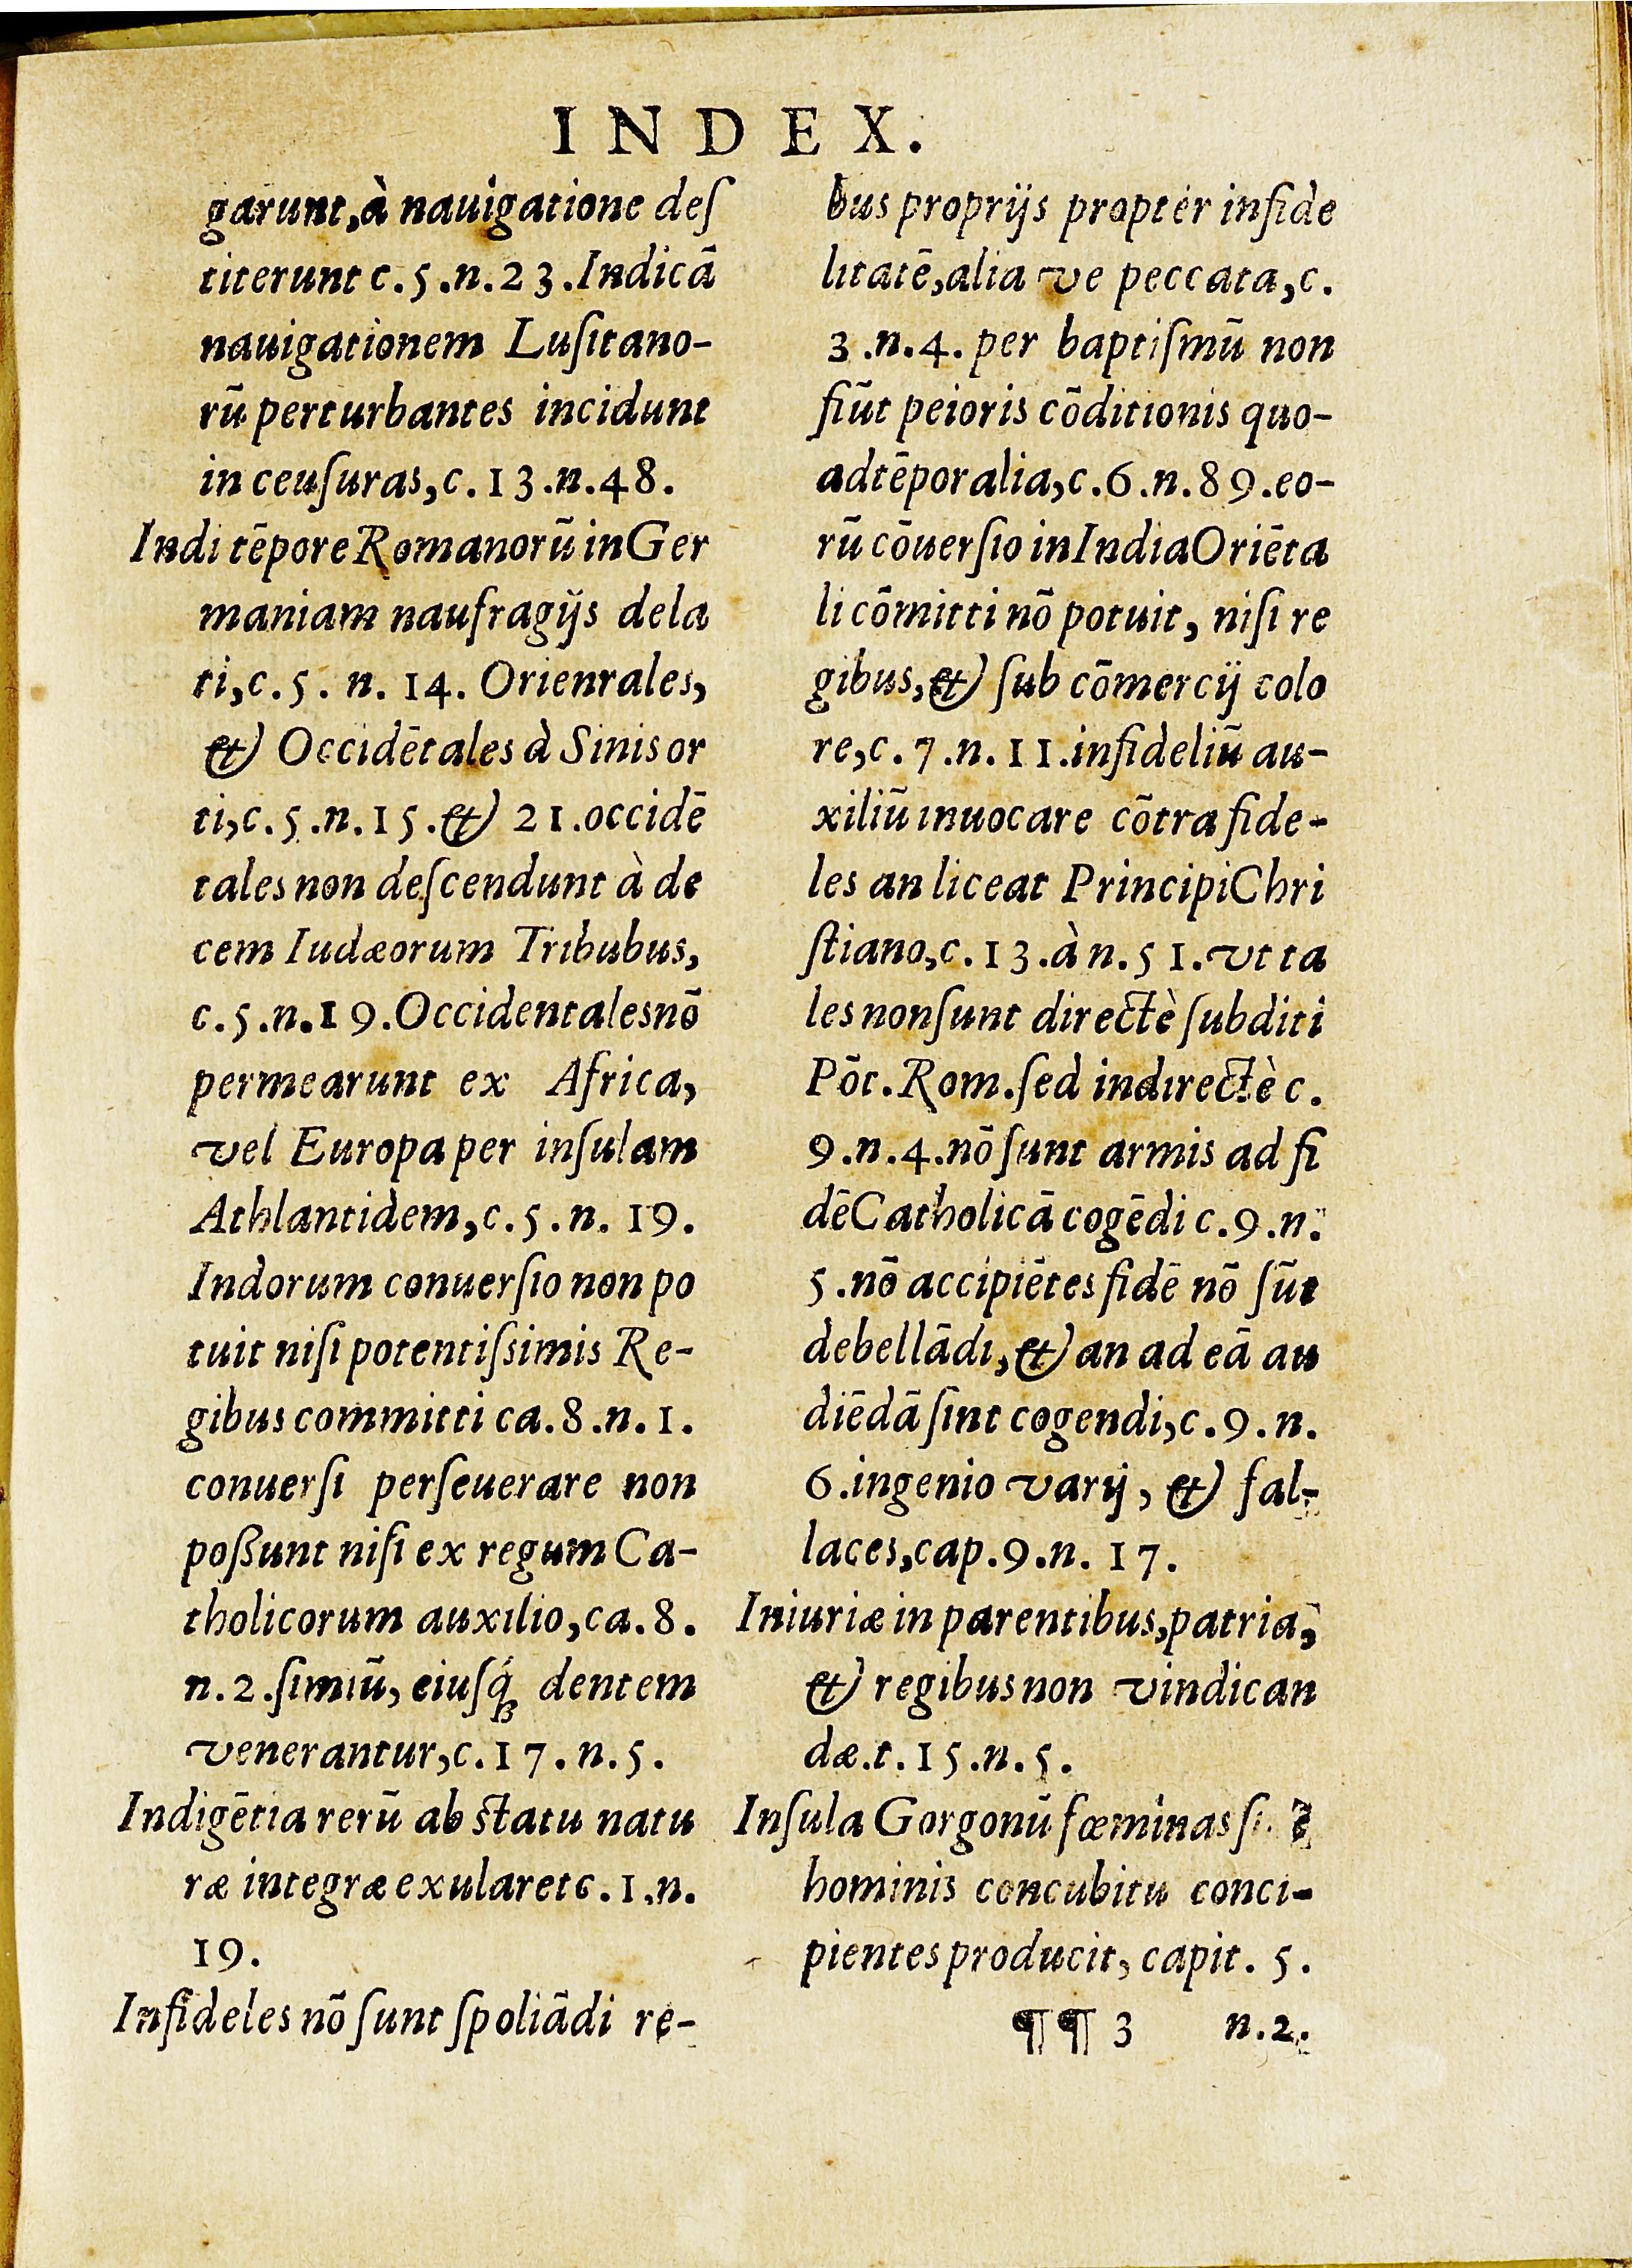 INDEX.
garunt, à nauigatione deſ
titerunt c. 5. n. 23. Indicā
nauigationem Luſitano-
rū perturbantes incidunt
in ceuſuras, c. 13. n. 48.
Indi tēpore Romanorū in Ger
maniam naufragijs dela
ti, c. 5. n. 14. Orienrales,
& Occidētales à Sinis or
ti, c. 5. n. 15. & 21. occidē
tales non deſcendunt à de
cem Iudæorum Tribubus,
c. 5. n. 19. Occidentales nō
permearunt ex Africa,
vel Europa per inſulam
Athlantidem, c. 5. n. 19.
Indorum conuerſio non po
tuit niſi potentiſsimis Re-
gibus committi ca. 8. n. 1.
conuerſi perſeuerare non
poßunt niſi ex regum Ca-
tholicorum auxilio, ca. 8.
n. 2. ſimiū, eiuſq́ꝫ dentem
venerantur, c. 17. n. 5.
Indigētia rerū ab ſtatu natu
ræ integræ exularet c. 1. n.
19.
Infideles nō ſunt ſpoliādi re-
bus proprijs propter infide
litatē, alia ve peccata, c.
3. n. 4. per baptiſmū non
fiūt peioris cōditionis quo-
ad tēporalia, c. 6. n. 89. eo-
rū cōuerſio in India Oriēta
li cōmitti nō potuit, niſi re
gibus, & ſub cōmercij colo
re, c. 7. n. 11. infideliū au-
xiliū inuocare cōtra fide-
les an liceat Principi Chri
ſtiano, c. 13. à n. 51. vt ta
les non ſunt directè ſubditi
Pōt. Rom. ſed indirectè c.
9. n. 4. nō ſunt armis ad fi
dē Catholicā cogēdi c. 9. n.
5. nō accipiētes fidē nō ſūt
debellādi, & an ad eā au
diēdā ſint cogendi, c. 9. n.
6. ingenio varij, & fal-
laces, cap. 9. n. 17.
Iniuriæ in parentibus, patria,
& regibus non vindican
dæ. t. 15. n. 5.
Inſula Gorgonū fœminas
hominis concubitu conci-
pientes producit, capit. 5.
¶¶ 3 n. 2.